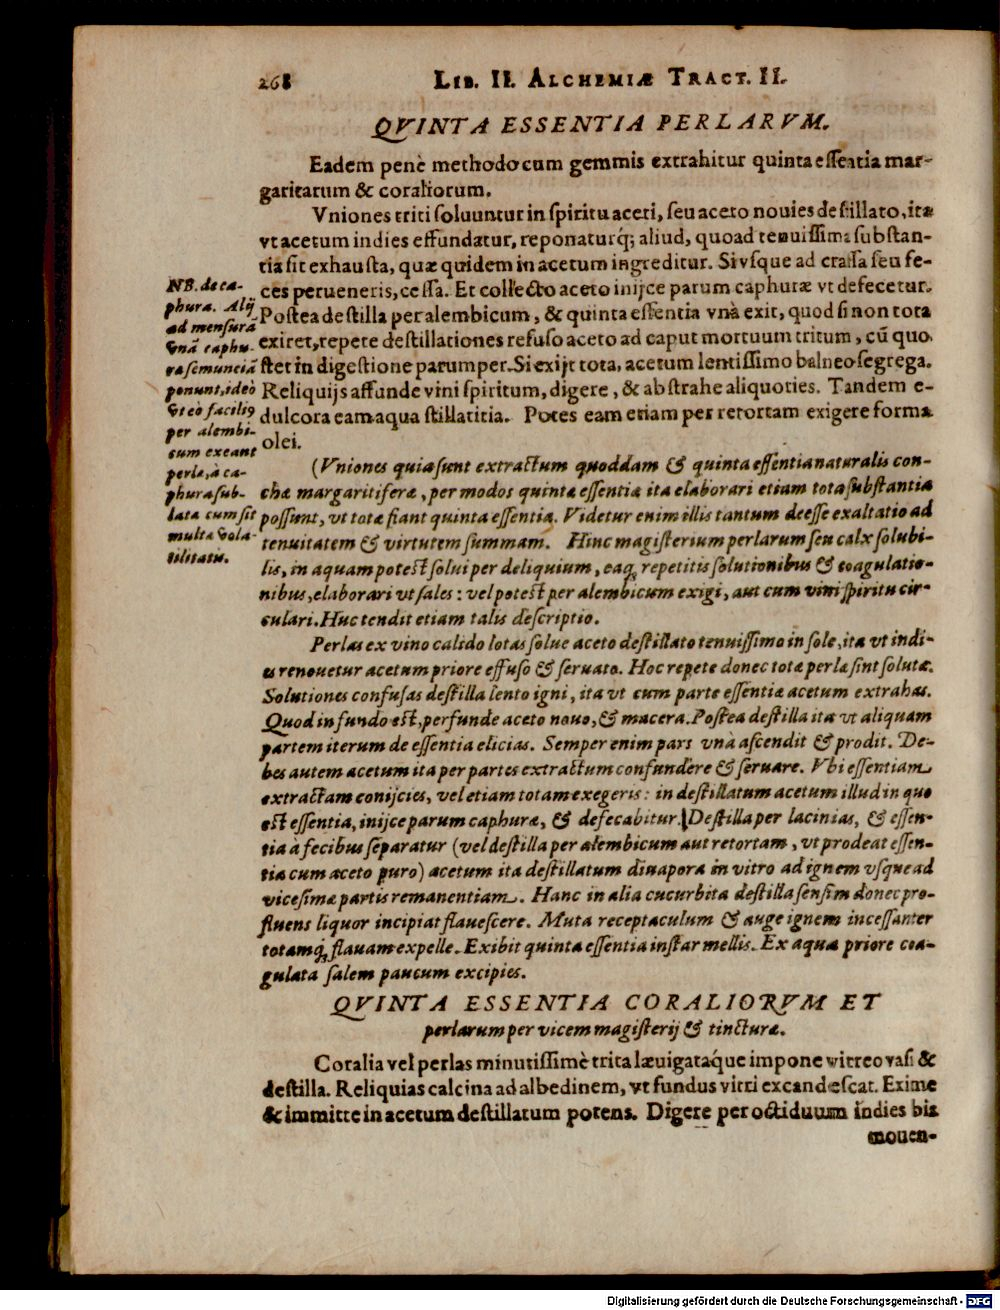 268 LIB. II. ALCHEMIÆ TRACT. II.
QVINTA ESSENTIA PERLARVM.
Eadem penè methodo cum gemmis extrahitur quinta essentia mar-
garitarum & coraliorum.
Vniones triti soluuntur in spiritu aceti, seu aceto nouies destillato, ita
vt acetum indies effundatur, reponaturq́; aliud, quoad tenuissima substan-
tia sit exhausta, quæ quidem in acetum ingreditur. Si vsque ad crassa seu fe-
ces perueneris, cessa. Et collecto aceto inijce parum caphuræ vt defecetur.
Postea destilla per alembicum, & quinta essentia vnà exit, quod si non tota
exiret, repete destillationes refuso aceto ad caput mortuum tritum, cũ quo
stet in digestione parumper. Si exijt tota, acetum lentissimo balneo segrega.
Reliquijs affunde vini spiritum, digere, & abstrahe aliquoties. Tandem e-
dulcora eam aqua stillatitia. Potes eam etiam per retortam exigere forma
olei.
NB. de ca-
phura. Alij
ad mensurã
vnã caphu-
ræ semunciã
ponunt, ideò
vt eò facilis9
per alembi-
cum exeant
perlæ, à ca-
phura sub-
lata cum sit
multa vola-
tilitatis.
(Vniones quia sunt extractum quoddam & quinta essentia naturalis con-
chæ margaritiferæ, per modos quintæ essentiæ ita elaborari etiam tota substantia
possunt, vt totæ fiant quinta essentia. Videtur enim illis tantum deesse exaltatio ad
tenuitatem & virtutem summam. Hinc magisterium perlarum seu calx solubi-
lis, in aquam potest solui per deliquium, eaq́; repetitis solutionibus & coagulatio-
nibus, elaborari vt sales: vel potest per alembicum exigi, aut cum vini spiritu cir-
culari. Huc tendit etiam talis descriptio.
Perlas ex vino calido lotas solue aceto destillato tenuissimo in sole, ita vt indi-
es renouetur acetum priore effuso & seruato. Hoc repete donec totæ perlæ sint solutæ.
Solutiones confusas destilla lento igni, ita vt cum parte essentiæ acetum extrahas.
Quod in fundo est, perfunde aceto nouo, & macera. Postea destilla ita vt aliquam
partem iterum de essentia elicias. Semper enim pars vnà ascendit & prodit. De-
bes autem acetum ita per partes extractum confundere & seruare. Vbi essentiam
extractam conijcies, vel etiam totam exegeris: in destillatum acetum illud in quo
est essentia, inijce parum caphuræ, & defecabitur. Destilla per lacinias, & essen-
tia à fecibus separatur (vel destilla per alembicum aut retortam, vt prodeat essen-
tia cum aceto puro) acetum ita destillatum diuapora in vitro ad ignem vsque ad
vicesimæ partis remanentiam. Hanc in alia cucurbita destilla sensim donec pro-
fluens liquor incipiat flauescere. Muta receptaculum & auge ignem incessanter
totamq́; flauam expelle. Exibit quinta essentia instar mellis. Ex aqua priore coa-
gulata salem paucum excipies.
QVINTA ESSENTIA CORALIORVM ET
perlarum per vicem magisterij & tincturæ.
Coralia vel perlas minutissimè trita læuigatáque impone vitreo vasi &
destilla. Reliquias calcina ad albedinem, vt fundus vitri excandescat. Exime
& immitte in acetum destillatum potens. Digere per octiduum indies bis
mouen-
Digitalisierung gefördert durch die Deutsche Forschungsgemeinschaft - DFG